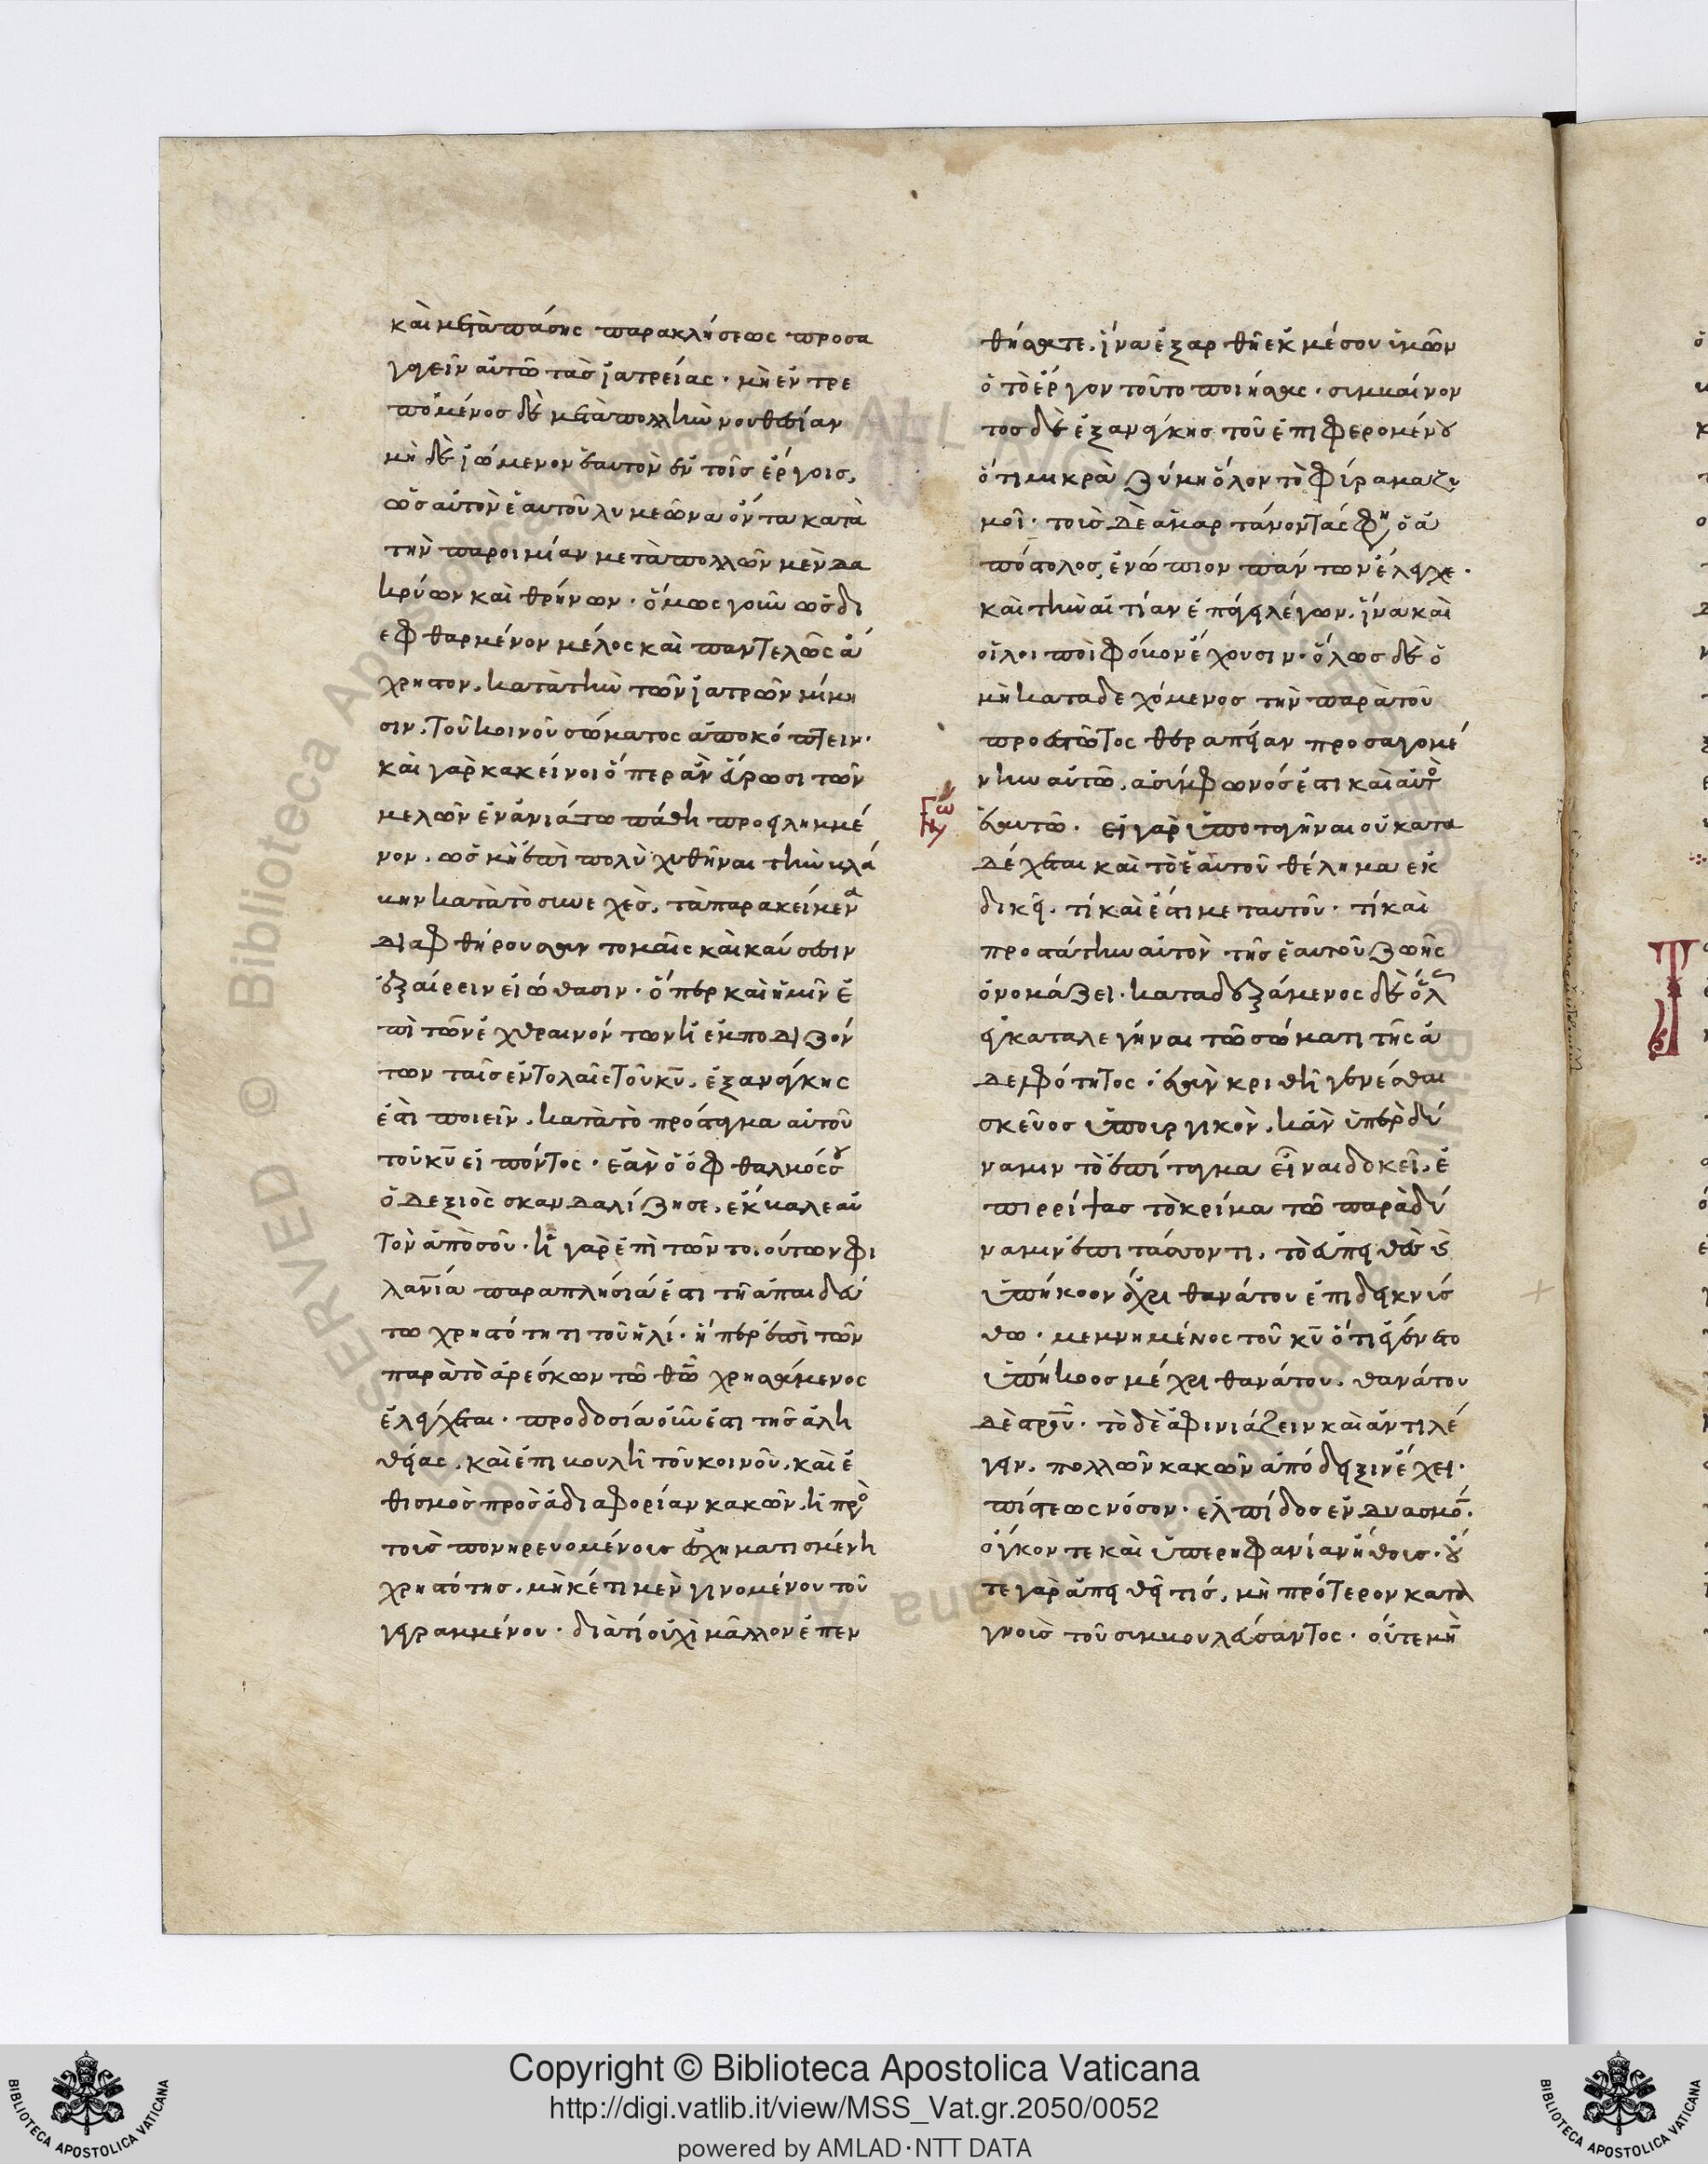 καὶ μετὰ πάσης παρακλήσεως προσα
γαγεῖν αὐτῶ τὰς ἰατρείας · μὴ ἐντρε
πόμενος δὲ μετὰ πολλὴν νουθεσίαν
μὴ δὲ ἰώμενον ἑαυτὸν ἐν τοῖς ἔργοις,
ὡς αὐτὸν ἑαυτοῦ λυμεῶνα ὄντα κατὰ
τὴν παροιμίαν μετὰ πολλῶν μὲν δα
κρύων καὶ θρήνων · ὅμως γοῦν ὡς δι
εφθαρμένον μέλος καὶ παντελῶς ἄ
χρηστον, κατὰ τὴν τῶν ἰατρῶν μίμη
σιν, τοῦ κοινοῦ σώματος ἀποκόπτειν ·
καὶ γὰρ κακεῖνοι ὅπερ ἂν εὕρωσι τῶν
μελῶν ἐν ἀνιάτω πάθει προειλημμέ
νον, ὡς μὴ ἐπὶ πολὺ χυθῆναι τὴν βλά
βην κατὰ τὸ συνεχὲς, τὰ παρακείμενα
διαφθείρουσαν τομαῖς καὶ καύσεσιν
ἐξαίρειν εἰώθασιν · ὅπερ καὶ ἡμῖν ἐ
πὶ τῶν ἐχθραινόντων ἢ ἐμποδιζόν
των ταῖς ἐντολαῖς τοῦ κυ, ἐξ ανάγκης
ἐστὶ ποιεῖν, κατὰ τὸ πρόσταγμα αὐτοῦ
τοῦ κυ εἰπόντος · ἐὰν ὁ ὀφθαλμός σου
ὁ δεξιὸς σκανδαλίζη σε, ἔκβαλε αὐ
τὸν ἀπὸ σοῦ · ἡ γὰρ ἐπὶ τῶν τοιούτων φι
λανία παραπλησία ἐστι τῆ ἀπαιδεύ
τω χρηστότητι τοῦ ἠλί · ἥπερ ἐπὶ τῶν
παρὰ τὸ ἀρέσκων τῶ θῶ χρησάμενος
ἐλέγχεται · προδοσία οὖν ἐστι τῆς ἀλη
θείας, καὶ ἐπιβουλὴ τοῦ κοινοῦ, καὶ ἐ
θισμὸς πρὸς ἀδιαφορίαν κακῶν, ἡ πρὸ
τοὺς πονηρευομένους ἐσχηματισμένη
χρηστότης, μὴκέτι μὲν γινομένου τοῦ
γεγραμμένου · διὰ τί οὐχὶ μᾶλλον ἐπεν
θήσατε, ἵνα ἐξαρθῆ ἐκ μέσου ὑμῶν
ὁ τὸ ἔργον τοῦτο ποιήσας · συμβαίνον
τος δὲ ἐξ ανάγκης τοῦ ἐπιφερομένου
ὅτι μικρὰ ζύμη ὅλον τὸ φύραμα ζυ
μοῖ · τοὺς δὲ ἁμαρτάνοντας φη, ὁ ἀ
πόστολος, ἐνώπιον πάντων ἔλεγχε ·
καὶ τὴν αἰτίαν ἐπάγει λέγων, ἵνα καὶ
οἱ λοιποὶ φόβον ἔχουσιν · ὅλως δὲ ὁ
μὴ καταδεχόμενος τὴν παρὰ τοῦ
προεστῶτος θεραπείαν προσαγομέ
νην αὐτῶ, ἀσύμφωνός ἐστι καὶ αὐτὸ
ἑαυτῶ · εἰ γὰρ ὑποταγῆναι οὐ κατα
δέχεται καὶ τὸ ἑαυτοῦ θέλημα ἐκ
δικεῖ, τί καὶ ἔστι μετ αυτοῦ · τί καὶ
προστάτην αὐτὸν τῆς ἑαυτοῦ ζωῆς
ὀνομάζει · καταδεξάμενος δὲ ὅλως
εἰκαταλεγῆναι τῶ σώματι τῆς ἀ
δελφότητος · ἐὰν κριθῆ γενέσθαι
σκεῦος ὑπουργικὸν, κἂν ὑπὲρ δύ
ναμιν τὸ ἐπίταγμα εἶναι δοκεῖ, ἐ
πιρρίψας τὸ κρίμα τῶ παρὰ δύ
ναμιν ἐπιτάσσοντι, τὸ εὐπειθὲς
ὑπήκοον ἄχρι θανάτου ἐπιδεικνύσ
θω · μεμνημένος τοῦ κυ ὅτι ἐγένετο
ὑπήκοος μέχρι θανάτου, θανάτου
δὲ σταυροῦ · τὸ δὲ ἀφηνιάζειν καὶ ἀντιλέ
γειν, πολλῶν κακῶν ἀπόδειξιν ἔχει ·
πίστεως νόσον · ἐλπίδος ἐνδυασμό ·
ὄγκον τε καὶ ὑπερηφανίαν ἤθους · οὔ
τε γὰρ ἀπειθεῖ τις, μὴ πρότερον κατα
γνοὺς τοῦ συμβουλεύσαντος · οὔτε μὴ